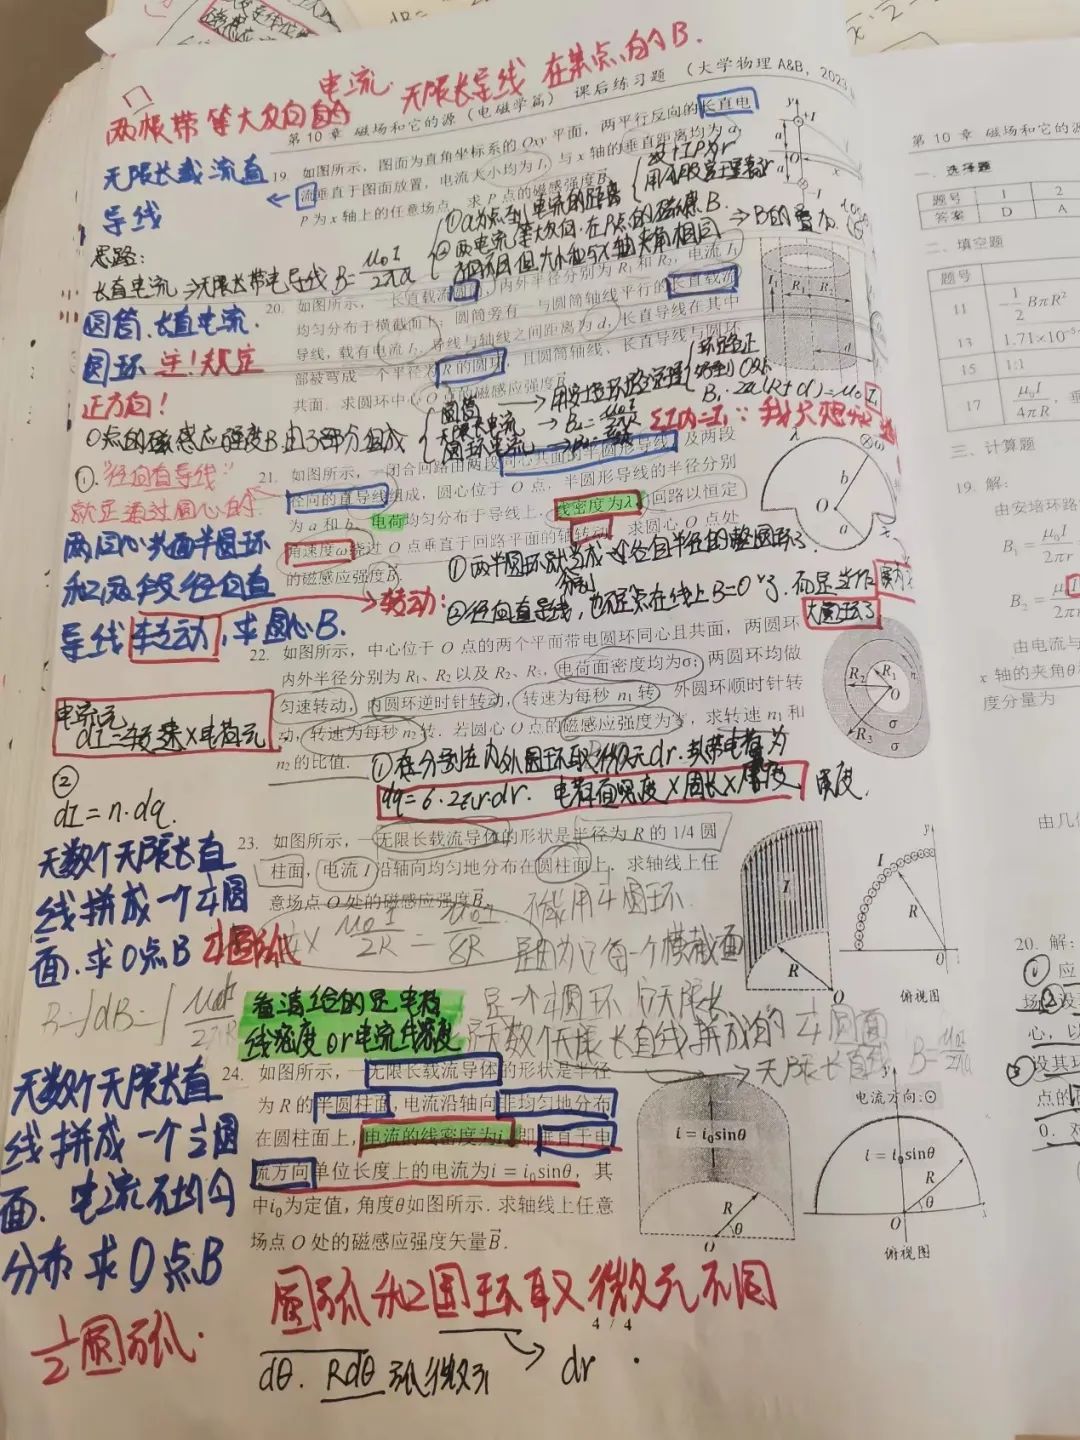 电流. 无限长导线 在某点的B.
两根带等大反向的
第 10 章 磁场和它的源 (电磁学篇) 课后练习题 (大学物理 A&B, 2023
无限长载流直
导线
19. 如图所示, 图面为直角坐标系的 Oxy 平面, 两平行反向的长直电
流垂直于图面放置, 电流大小均为 I, 与 x 轴的垂直距离均为 a,
P 为 x 轴上的任意场点. 求 P 点的磁感强度B.
思路:
长直电流⇒无限长带电导线 B=μ₀I/2πa
①a为点到电流的距离
②两电流等大反向. 在P点的磁感B.
不相同 但大小和与x轴夹角相同
⇒B的叠加
圆筒、长直电流.
圆环 注!规定
正方向!
20. 如图所示, 一长直载流圆筒, 内外半径分别为 R₁ 和 R₂, 电流 I₁
均匀分布于横截面上; 圆筒旁有一与圆筒轴线平行的长直载流
导线, 载有电流 I₂, 导线与轴线之间距离为 d, 长直导线在其中
部被弯成一个半径为 R 的圆环, 且圆筒轴线、长直导线与圆环
共面. 求圆环中心 O 点的磁感应强度B.
O点的磁感应强度B由3部分组成
圆筒
无限长电流
圆环电流
B₁·2π(R+d)=μ₀I₁
①."径向直导线"
就是通过圆心的.
两同心共面半圆环
和2段径向直
导线转动,求圆心B.
21. 如图所示, 一闭合回路由两段同心共面的半圆形导线及两段
径向的直导线组成, 圆心位于 O 点, 半圆形导线的半径分别
为 a 和 b. 电荷均匀分布于导线上, 线密度为λ, 回路以恒定
角速度ω绕过 O 点垂直于回路平面的轴转动. 求圆心 O 点处
的磁感应强度B.
转动:
①两半圆环就当成
分别
各自半径的整圆环了.
②径向直导线, 也不是点在线上B=0了. 而是当作
大圆环了
22. 如图所示, 中心位于 O 点的两个平面带电圆环同心且共面, 两圆环
内外半径分别为 R₁、R₂ 以及 R₂、R₃, 电荷面密度均为σ; 两圆环均做
匀速转动, 内圆环逆时针转动, 转速为每秒 n₁ 转, 外圆环顺时针转
动, 转速为每秒 n₂转. 若圆心 O 点的磁感应强度为零, 求转速 n₁ 和
n₂ 的比值.
电流元
dI=转速×电荷元
②
dI=n·dq.
①在分别在内外圆环取微元dr. 其带电荷为
dq=σ·2πr·dr. 电荷面密度×周长×厚度
厚度.
无数个无限长直
线拼成一个¼圆
面. 求O点B ¼圆弧
23. 如图所示, 一无限长载流导体的形状是半径为 R 的 1/4 圆
柱面, 电流 I 沿轴向均匀地分布在圆柱面上, 求轴线上任
意场点 O 处的磁感应强度B.
¼×μ₀I/2R=μ₀I/8R
不能用¼圆环.
是因为它每一个横截面
是一个¼圆环
无数个无限长直线拼成的¼圆面
看清给的是电荷
线密度 or 电流线密度
俯视图
无限长直线 B=μ₀I/2πa
无数个无限长直
线拼成一个½圆
面. 电流不均匀
分布 求O点B
½圆弧.
24. 如图所示, 一无限长载流导体的形状是半径
为 R 的半圆柱面, 电流沿轴向非均匀地分布
在圆柱面上, 电流的线密度为i, 即垂直于电
流方向单位长度上的电流为i = i₀sinθ, 其
中i₀为定值, 角度θ如图所示. 求轴线上任意
场点 O 处的磁感应强度矢量B.
i = i₀sinθ
R
θ
O
电流方向:⊙
i = i₀sinθ
R
θ
O
俯视图
圆弧和圆环取微元不同
4 / 4
dθ. Rdθ 弧微元
dr
第 10 章 磁场和它的源
一、选择题
题号 1 2
答案 D A
二、填空题
题号
11 ½BπR²
13 1.71×10⁻⁵
15 1:1
17 μ₀I/4πR, 垂
三、计算题
19. 解:
由安培环路
B₁ = μ₀I/2πr
B₂ =
由电流与
x 轴的夹角θ
度分量为
由几何
20. 解: